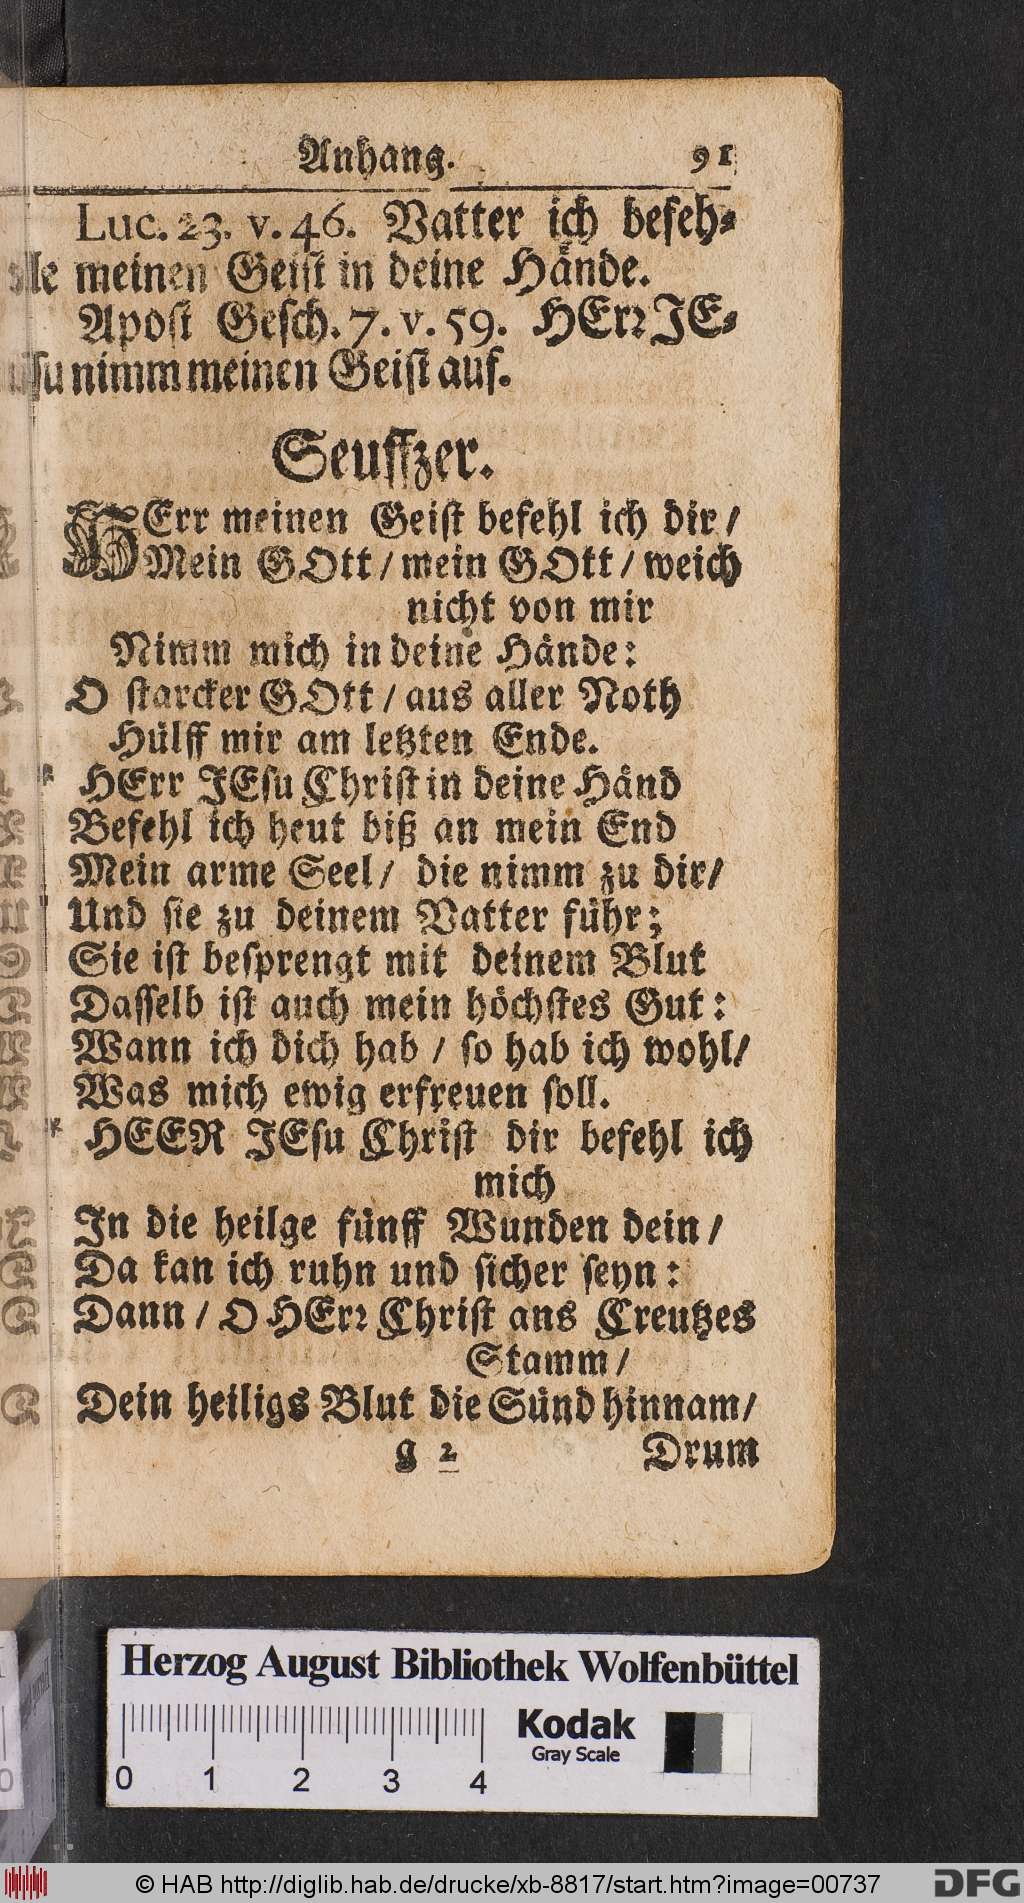 Anhang. 91
Luc. 23. v. 46. Vatter ich befeh⸗
le meinen Geist in deine Hände.
Apost Gesch. 7. v. 59. HErr JE⸗
su nimm meinen Geist auf.
Seuffzer.
HErr meinen Geist befehl ich dir /
Mein GOtt / mein GOtt / weich
nicht von mir
Nimm mich in deine Hände:
O starcker GOtt / aus aller Noth
Hülff mir am letzten Ende.
* HErr JEsu Christ in deine Händ
Befehl ich heut biß an mein End
Mein arme Seel / die nimm zu dir /
Und sie zu deinem Vatter führ;
Sie ist besprengt mit deinem Blut
Dasselb ist auch mein höchstes Gut:
Wann ich dich hab / so hab ich wohl /
Was mich ewig erfreuen soll.
* HEER JEsu Christ dir befehl ich
mich
In die heilge fünff Wunden dein /
Da kan ich ruhn und sicher seyn:
Dann / O HErr Christ ans Creutzes
Stamm /
Dein heiligs Blut die Sünd hinnam /
g 2 Drum
Herzog August Bibliothek Wolfenbüttel
Kodak
Gray Scale
0 1 2 3 4
© HAB http://diglib.hab.de/drucke/xb-8817/start.htm?image=00737
DFG